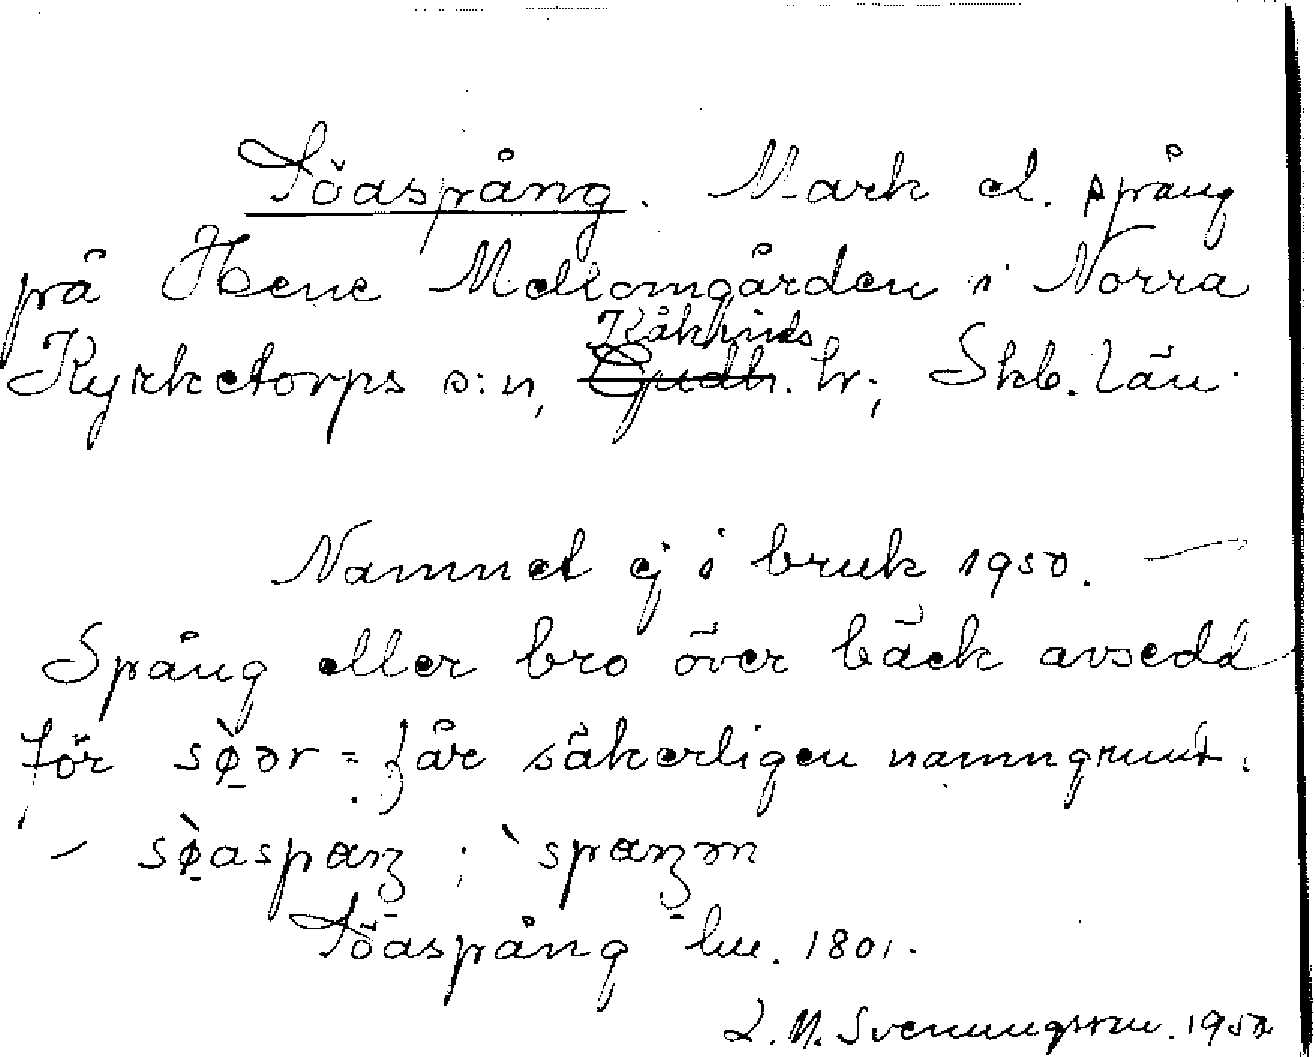 Söaspång. Mark el. spång
på Hene Mellomgården i Norra
Kyrketorps s:n, Kåkinds hr; Skb. län.
Namnet ej i bruk 1950. —
Spång eller bro över bäck avsedd
för sø̀ər = får säkerligen namngrund.
– sø̀aspaŋ ; `spaŋən
Söaspång lm. 1801.
L. M. Svenungsson. 1950